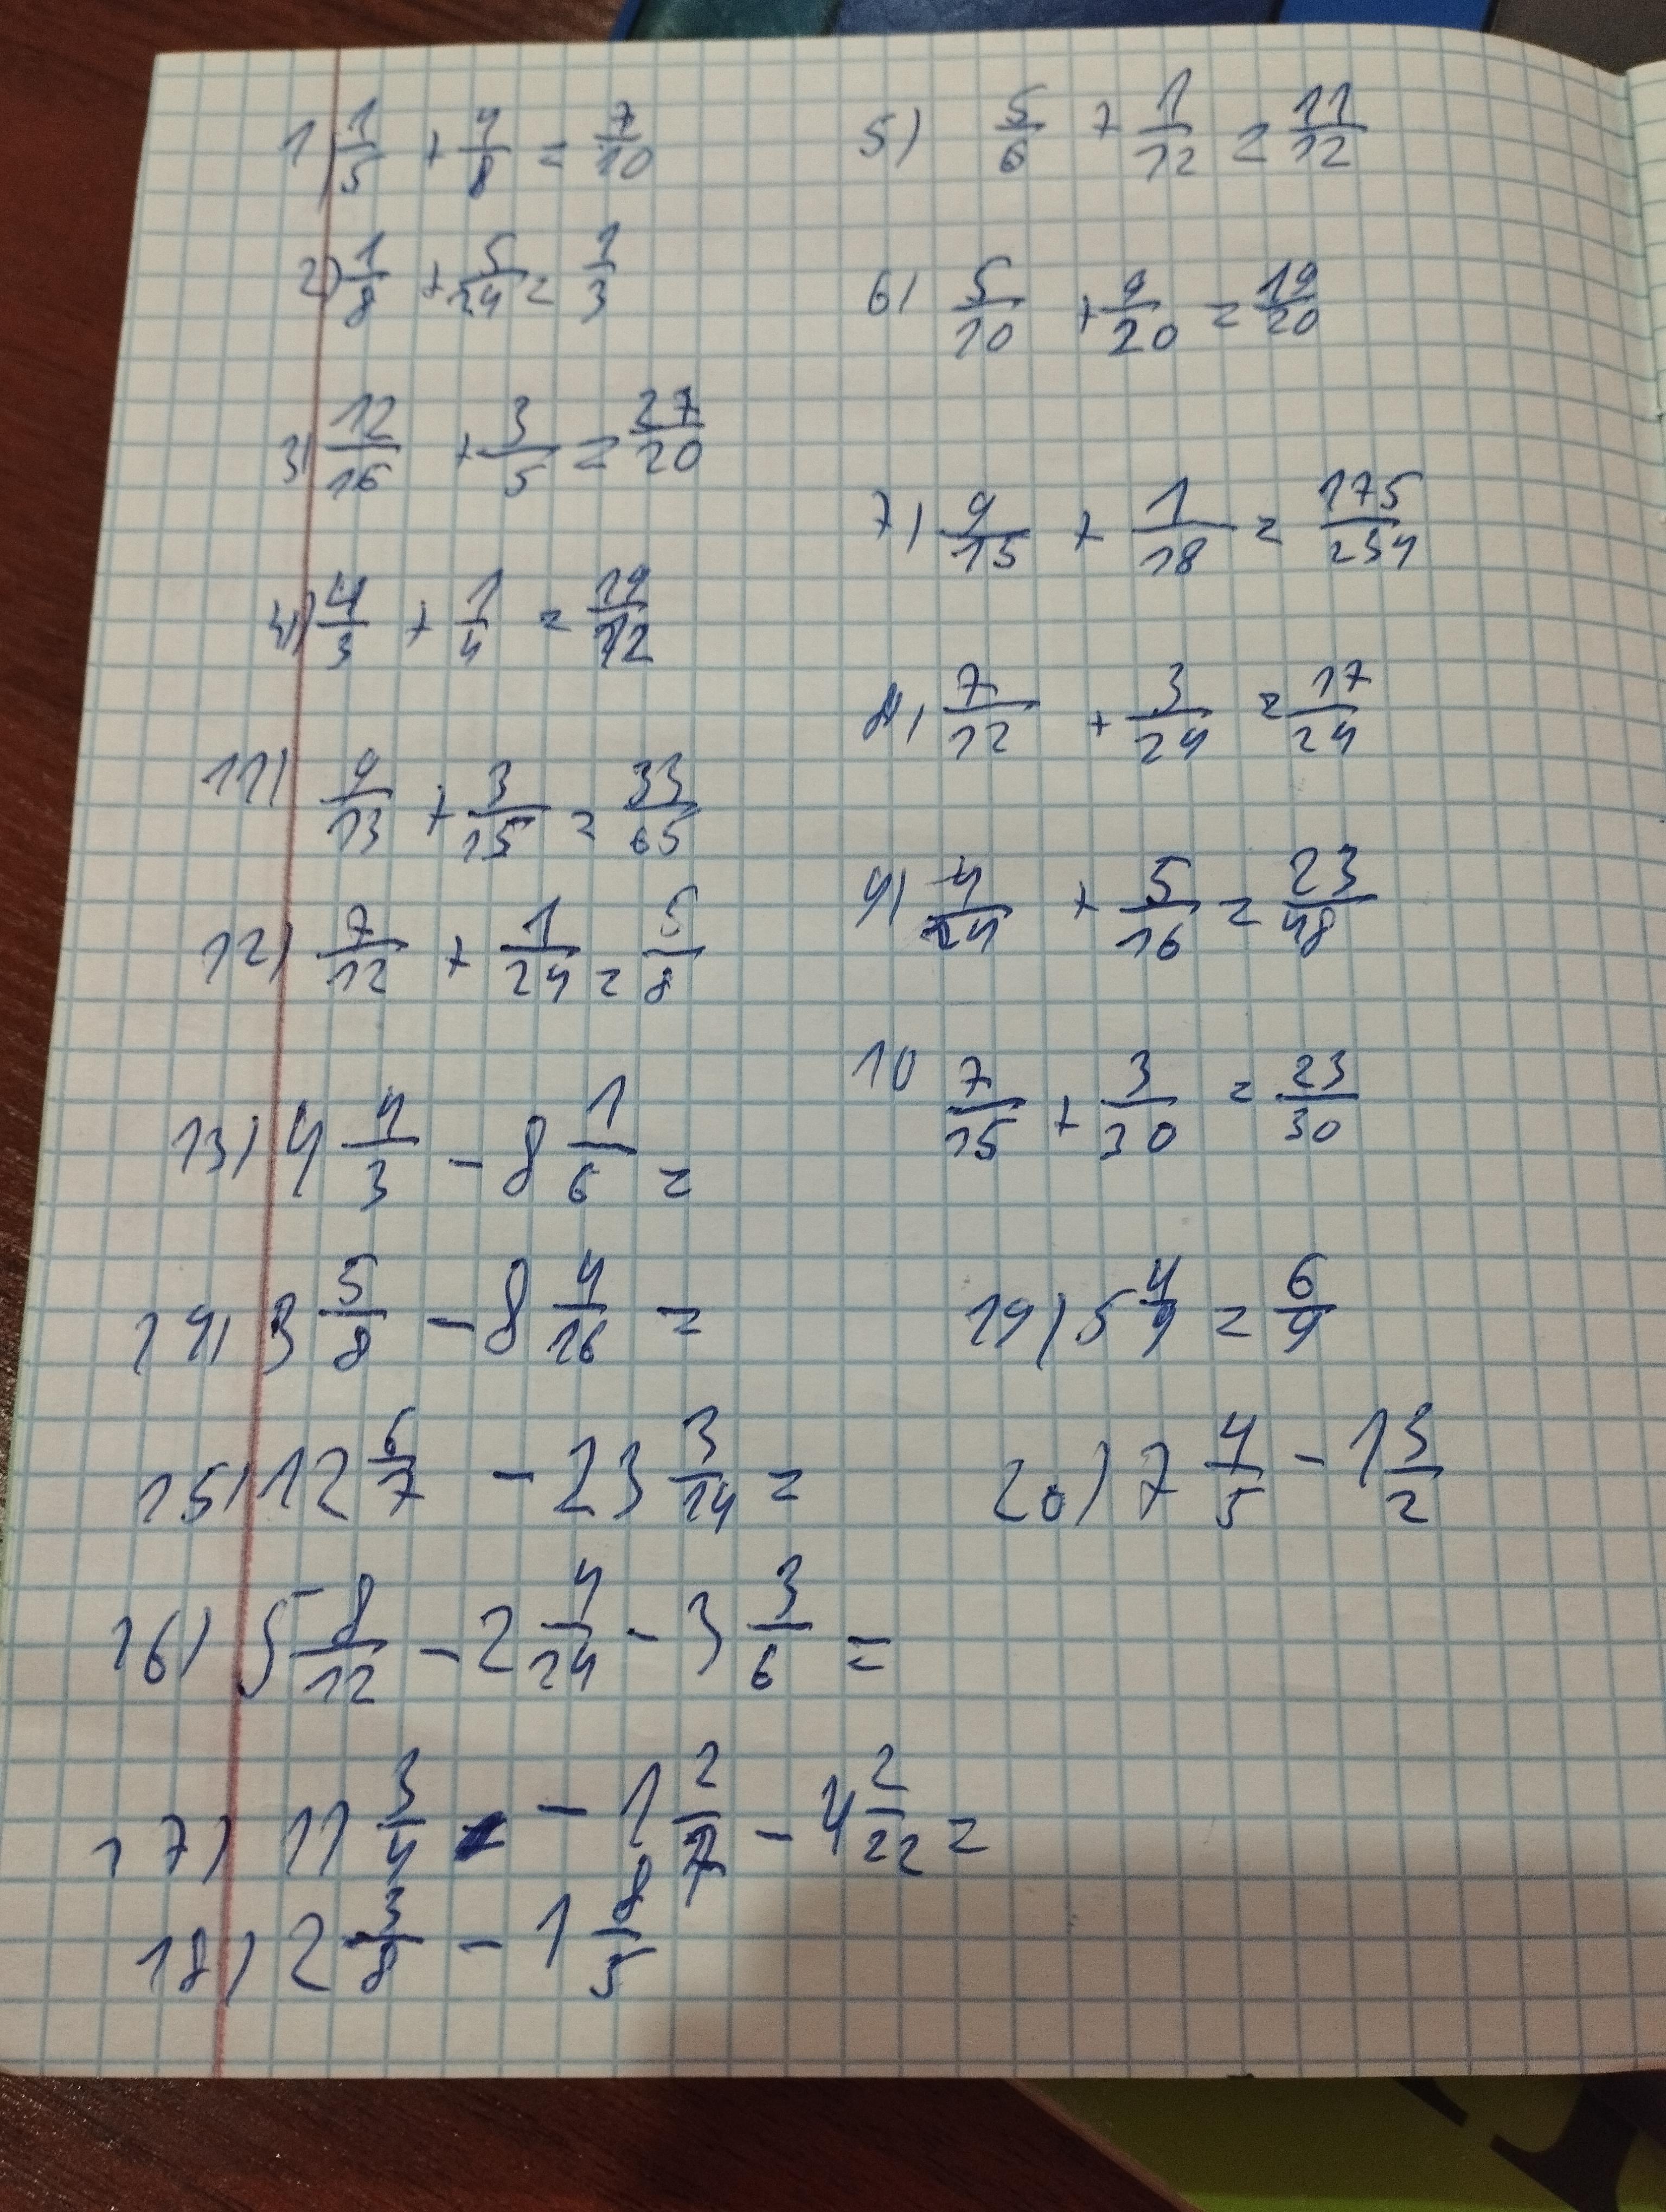 1) 1/5 + 4/8 = 7/10
2) 1/8 + 5/24 = 1/3
3) 12/16 + 3/5 = 27/20
4) 4/3 + 1/4 = 19/12
11) 4/13 + 3/15 = 33/65
12) 7/12 + 1/24 = 5/8
13) 4 4/3 - 8 1/6 =
14) 3 5/8 - 8 4/16 =
15) 12 6/7 - 23 3/14 =
16) 5 8/12 - 2 4/24 - 3 3/6 =
17) 11 3/4 - 1 2/7 - 4 2/22 =
18) 2 3/8 - 1 8/5
5) 5/6 + 1/12 = 11/12
6) 5/10 + 9/20 = 19/20
7) 9/13 + 1/18 = 175/234
8) 7/12 + 3/24 = 17/24
9) 4/24 + 5/16 = 23/48
10 7/15 + 3/30 = 23/30
19) 5 4/9 = 6/9
20) 7 4/5 - 1 3/2